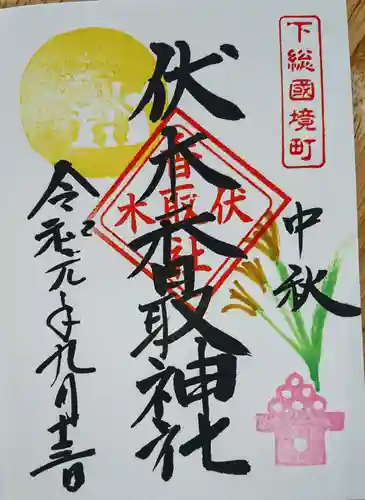 下総國境町
中秋
伏木香取神社
香取社
伏
木
令和元年九月十三日